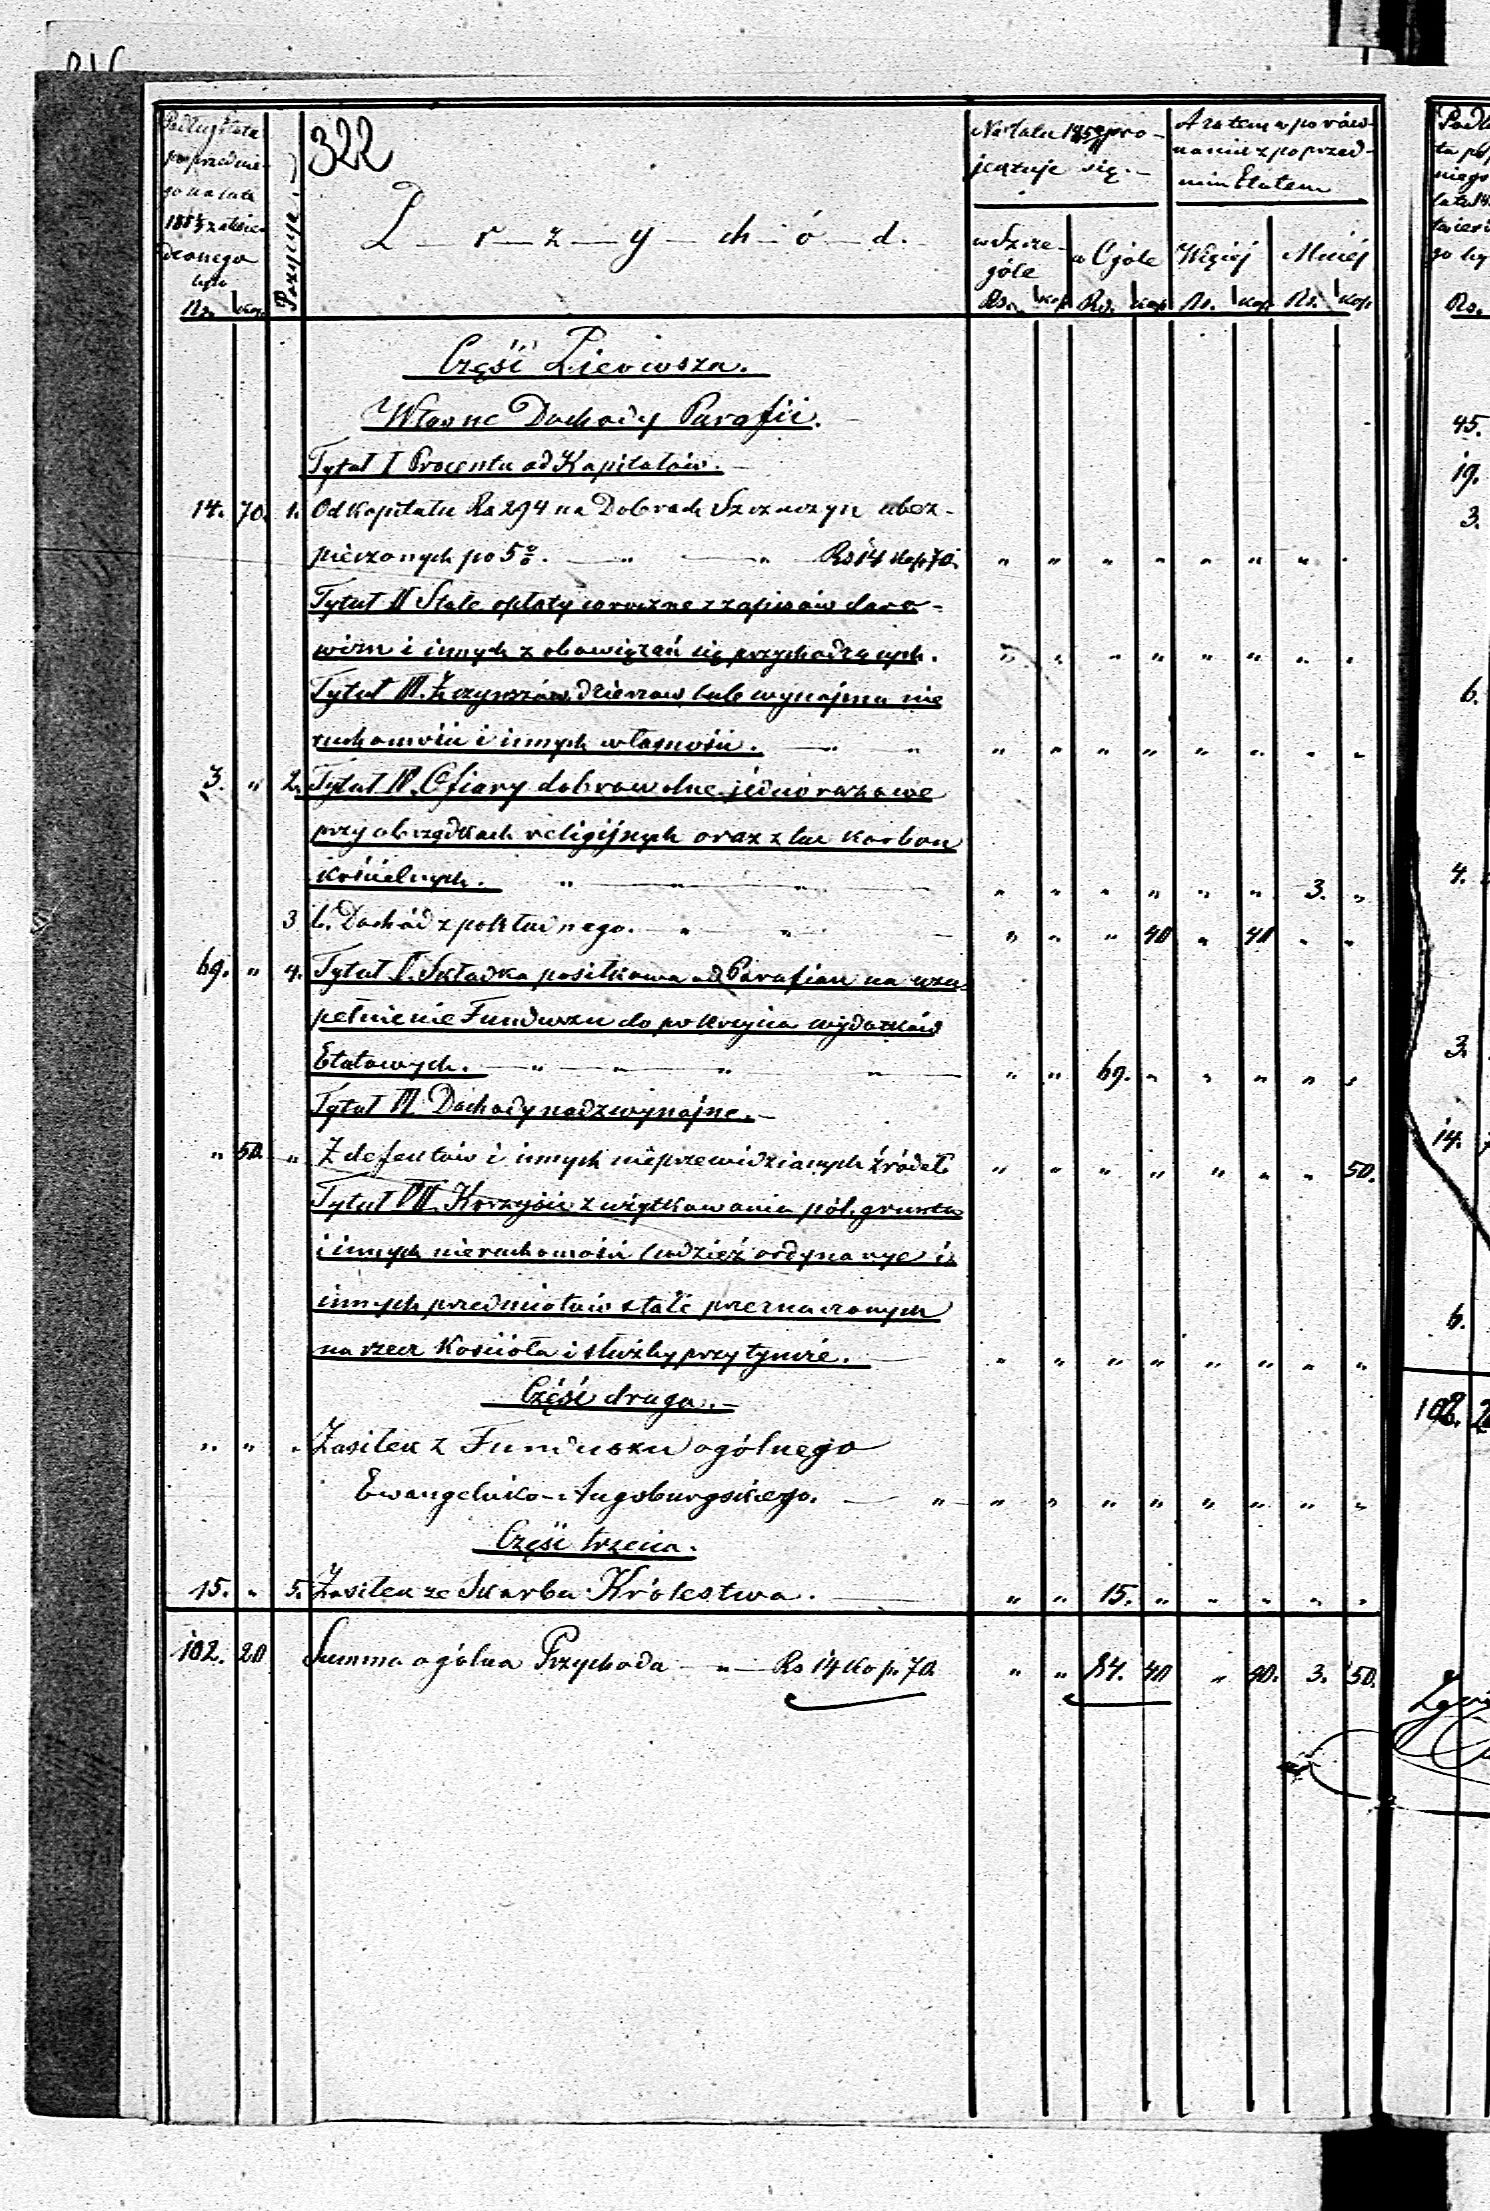 322
Podług Etatu
poprzednie-
go na lata
dzonego
było
Rs. kop.
Pozycya
P r z y c h ó d.
Na lata pro-
jektuje się.
w Szcze-
góle
w Ogóle
Rs. kop. Rs. kop.
A zatem w porów-
naniu z poprzed-
nim Etatem
Więcej Mniej
Rs. kop. Rs. kop.
Część Pierwsza.
Własne Dochody Parafii.
Tytuł I Procenta od Kapitałów.
14. 70. 1. Od Kapitału Rs 294 na Dobrach Szczuczyn ubez-
pieczonych po 5%. " " Rs 14 kop 70. " " " " " " " "
Tytuł II Stałe opłaty coroczne z zapisów daro-
wizn i innych zobowiązań się przychodzących. " " " " " " " "
Tytuł III. Z czynszów dzierzaw lub wynajmu nie
ruchomości i innych własności. " " " " " " " " " "
3. " 2. Tytuł IV. Ofiary dobrowolne jednorazowe
przy obrządkach religijnych oraz z lar karbon
kościelnych. " " " " " " " " " 3. "
3 b. Dochód z pokładnego. " " " " " 40 " 40 " "
69. " 4. Tytuł V. Składka posiłkowa od Parafian na uzu
pełnienie Funduszu do pokrycia wydatków
Etatowych. " " " " " 69. " " " " "
Tytuł VI. Dochody nadzwyczajne.
" 50. " Z defektów i innych nieprzewidzianych źródeł " " " " " " " 50.
Tytuł VII. Korzyści z użytkowania pól, gruntu
i innych nieruchomości tudzież ordynaryi i
innych przedmiotów stale przeznaczonych
na rzecz Kościoła i służby przy tymże. " " " " " " " "
Część druga.
" " " Zasiłek z Funduszu ogólnego
Ewangelicko-Augsburgskiego. " " " " " " " " "
Część trzecia.
15. " 5. Zasiłek ze Skarbu Królestwa. " " 15. " " " " "
102. 20 Summa ogólna Przychodu " Rs 14 kop 70. " " 84. 40 " 40. 3. 50.
45.
19.
3.
6.
4.
3.
14.
6.
102.